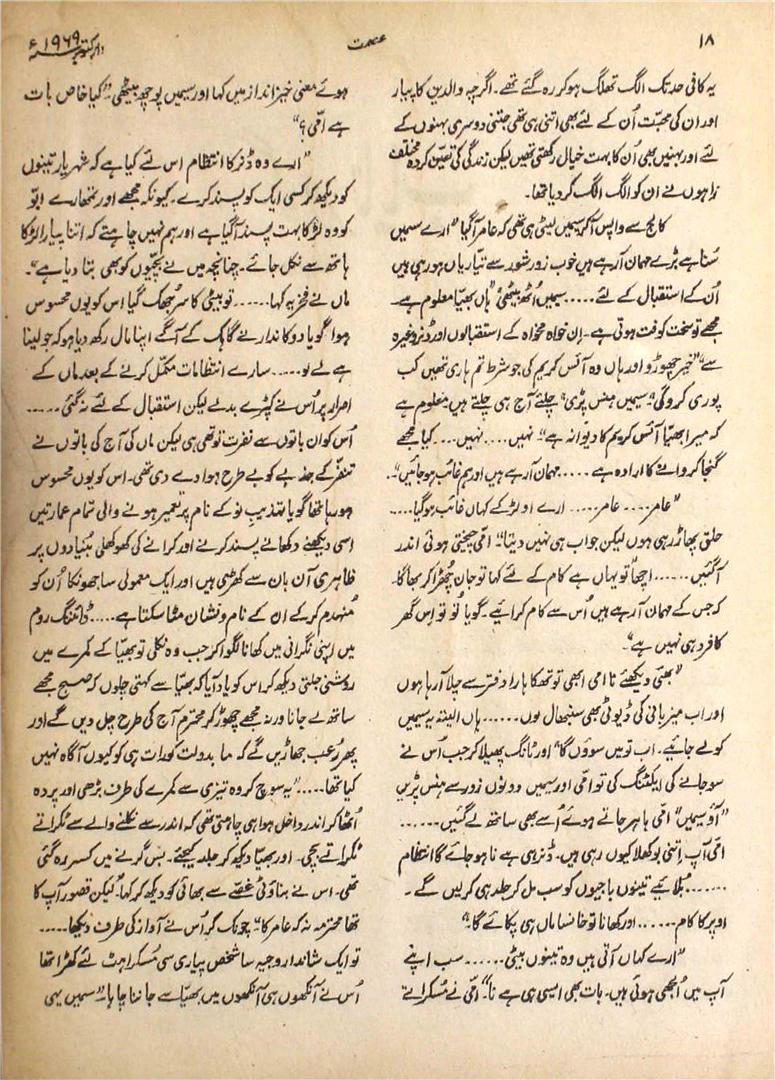 ۱۸
عصمت
دسمبر ۱۹۶۹ء
یہ کافی حد تک الگ تھلگ ہو کر رہ گئے تھے۔ اگرچہ والدین کا پیار
اور ان کی محبت اُن کے لئے بھی اتنی ہی تھی جتنی دوسری بہنوں کے
لئے اور بہنیں بھی اُن کا بہت خیال رکھتی تھیں لیکن زندگی کی تعین کردہ مختلف
راہوں نے ان کو الگ الگ کر دیا تھا۔
کالج سے واپس آ کر سیمیں لیٹی ہی تھی کہ عامر آ گیا "ارے سمیں
سُنا ہے بڑے مہمان آرہے ہیں خوب زور شور سے تیاریاں ہو رہی ہیں
اُن کے استقبال کے لئے ..... سیمیں اُٹھ بیٹھی "ہاں بھیّا معلوم ہے
مجھے تو سخت کوفت ہوتی ہے۔ اِن خواہ مخواہ کے استقبالوں اور ڈنر وغیرہ
سے" "خیر چھوڑو اور ہاں وہ آئس کریم کی جو شرط تم ہاری تھیں کب
پوری کرو گی"۔ سیمیں ہنس پڑی "چلئے آج ہی چلتے ہیں معلوم ہے
کہ میرا بھیّا آئس کریم کا دیوانہ ہے" نہیں ..... نہیں ... کیا مجھے
گنجا کروانے کا ارادہ ہے ..... مہمان آرہے ہیں اور ہم غائب ہو جائیں"۔
"عامر .... عامر .... ارے او لڑکے کہاں غائب ہو گیا .....
حلق پھاڑ رہی ہوں لیکن جواب ہی نہیں دیتا"۔ امّی چیختی ہوئی اندر
آگئیں ...... اچھا تو یہاں ہے کام کے لئے کہا تو جان چھڑا کر بھاگا۔
کہ جس کے مہمان آرہے ہیں اُس سے کام کرائیے۔ گویا تُو تو اِس گھر
کا فرد ہی نہیں ہے"۔
"بھئی دیکھئے نا امی ابھی تو تھکا ہارا دفتر سے چلا آرہا ہوں
اور اب میزبانی کی ڈیوٹی بھی سنبھال لوں ...... ہاں البتہ یہ سیمیں
کو لے جائیے۔ اب تو میں سوؤں گا" اور ٹانگ پھیلا کر جب اُس نے
سو جانے کی ایکٹنگ کی تو امّی اور سیمیں دونوں زور سے ہنس پڑیں
"آؤ سیمیں" امّی باہر جاتے ہوئے اُسے بھی ساتھ لے گئیں ......
امّی آپ اتنی بوکھلا کیوں رہی ہیں۔ ڈنر ہی ہے نا ہو جائے گا انتظام
...... بُلائیے تینوں باجیوں کو سب مل کر جلد ہی کر لیں گے۔
اوپر کا کام ...... اور کھانا تو خانساماں ہی پکائے گا"
"ارے کہاں آتی ہیں وہ تینوں بیٹی ...... سب اپنے
آپ میں اُلجھی ہوئی ہیں۔ بات بھی ایسی ہی ہے نا"۔ امّی نے مُسکراتے
ہوئے معنی خیز انداز میں کہا اور سیمیں پوچھ بیٹھی "کیا خاص بات
ہے امّی؟"
"ارے وہ ڈنر کا انتظام اس لئے کیا ہے کہ شہریار تینوں
کو دیکھ کر کسی ایک کو پسند کرے۔ کیونکہ مجھے اور تمھارے ابّو
کو وہ لڑکا بہت پسند آگیا ہے اور ہم نہیں چاہتے کہ اتنا پیارا لڑکا
ہاتھ سے نکل جائے۔ چنانچہ میں نے بچیّوں کو بھی بتا دیا ہے"۔
ماں نے فخریہ کہا ...... تو بیٹی کا سر جھک گیا اس کو یوں محسوس
ہوا گویا دوکاندار نے گاہک کے آگے اپنا مال رکھ دیا ہو کہ جو لینا
ہے لے لو ..... سارے انتظامات مکمّل کرنے کے بعد ماں کے
اصرار پر اُس نے کپڑے بدلے لیکن استقبال کے لئے نہ گئی .....
اُس کو ان باتوں سے نفرت تو تھی ہی لیکن ماں کی آج کی باتوں نے
تنفّر کے جذبے کو بے طرح ہوا دے دی تھی۔ اس کو یوں محسوس
ہو رہا تھا گویا تہذیبِ نو کے نام پر تعمیر ہونے والی تمام عمارتیں
اسی دیکھنے دکھانے پسند کرنے اور کرانے کی کھوکھلی بنیادوں پر
ظاہری آن بان سے کھڑی ہیں اور ایک معمولی سا جھونکا اُن کو
مُنہدم کر کے ان کے نام و نشان مٹا سکتا ہے ..... ڈائننگ روم
میں اپنی نگرانی میں کھانا لگوا کر جب وہ نکلی تو بھیّا کے کمرے میں
روشنی جلتی دیکھ کر اس کو یاد آیا کہ بھیّا سے کہتی چلوں کہ صبح مجھے
ساتھ لے جانا ورنہ مجھے چھوڑ کر محترم آج کی طرح چل دیں گے اور
پھر رُعب جھاڑیں گے کہ ما بدولت کو رات ہی کو کیوں آگاہ نہیں
کیا تھا ..... "یہ سوچ کر وہ تیزی سے کمرے کی طرف بڑھی اور پردہ
اُٹھا کر اندر داخل ہوا ہی چاہتی تھی کہ اندر سے نکلنے والے سے ٹکراتے
ٹکراتے بچی۔ اور بھیّا دیکھ کر چلا کیجئے۔ بس گرنے میں کسر رہ گئی
تھی۔ اس نے بناؤٹی غصّے سے بھائی کو دیکھ کر کہا۔ "لیکن قصور آپ کا
تھا محترمہ نہ کہ عامر کا" چونک کر اُس نے آواز کی طرف دیکھا .....
تو ایک شاندار وجیہ سا شخص پیاری سی مُسکراہٹ لئے کھڑا تھا
اُس نے آنکھوں ہی آنکھوں میں بھیّا سے جاننا چاہا۔ "سمیں یہی